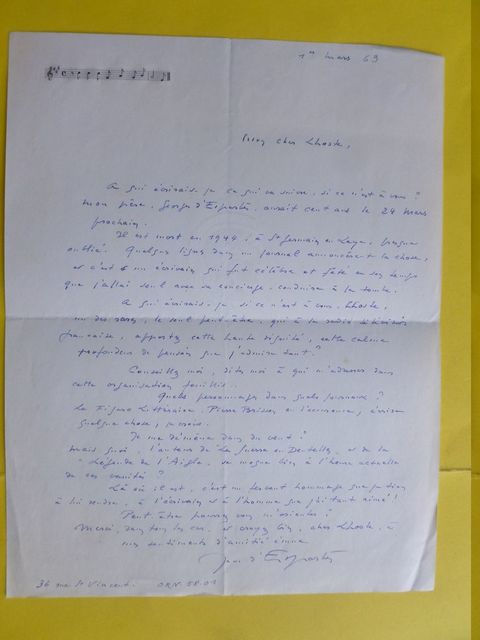 1er mars 69
Mon cher Lhoste,
A qui écrirais-je ce qui va suivre, si ce n'est à vous ?
Mon père, Georges d'Esparbès, aurait cent ans le 24 mars
prochain.
Il est mort en 1944, à St Germain en Laye, presque
oublié. Quelques lignes dans un journal annoncèrent la chose,
et c'est un écrivain qui fut célèbre et fêté en son temps
que j'allai seul avec sa concierge, conduire à la tombe.
A qui écrirais-je, si ce n'est à vous, Lhoste,
un des rares, le seul peut-être, qui à la radio télévision
française, apportez cette haute dignité, cette calme
profondeur de pensée que j'admire tant ?
Conseillez moi, dites moi à qui m'adresser dans
cette organisation
Quels personnages dans quels journaux ?
Le Figaro Littéraire, Pierre Brisson, en l'occurrence, écrira
quelque chose, je crois.
Je me démène dans du vent ?
Mais quoi, l'auteur de La Guerre en Dentelles, et de la
Légende de l'Aigle, se moque bien, à l'heure actuelle
de ces vanités ?
Là où il est, c'est un fervent hommage que je tiens
à lui rendre, à l'écrivain et à l'homme que j'ai tant aimé !
Peut être pourrez vous m'orienter ?
Merci, dans tous les cas, et croyez bien, cher Lhoste, à
mes sentiments d'amitié émue
Jean d'Esparbès
36 rue St Vincent. ORN 58.01